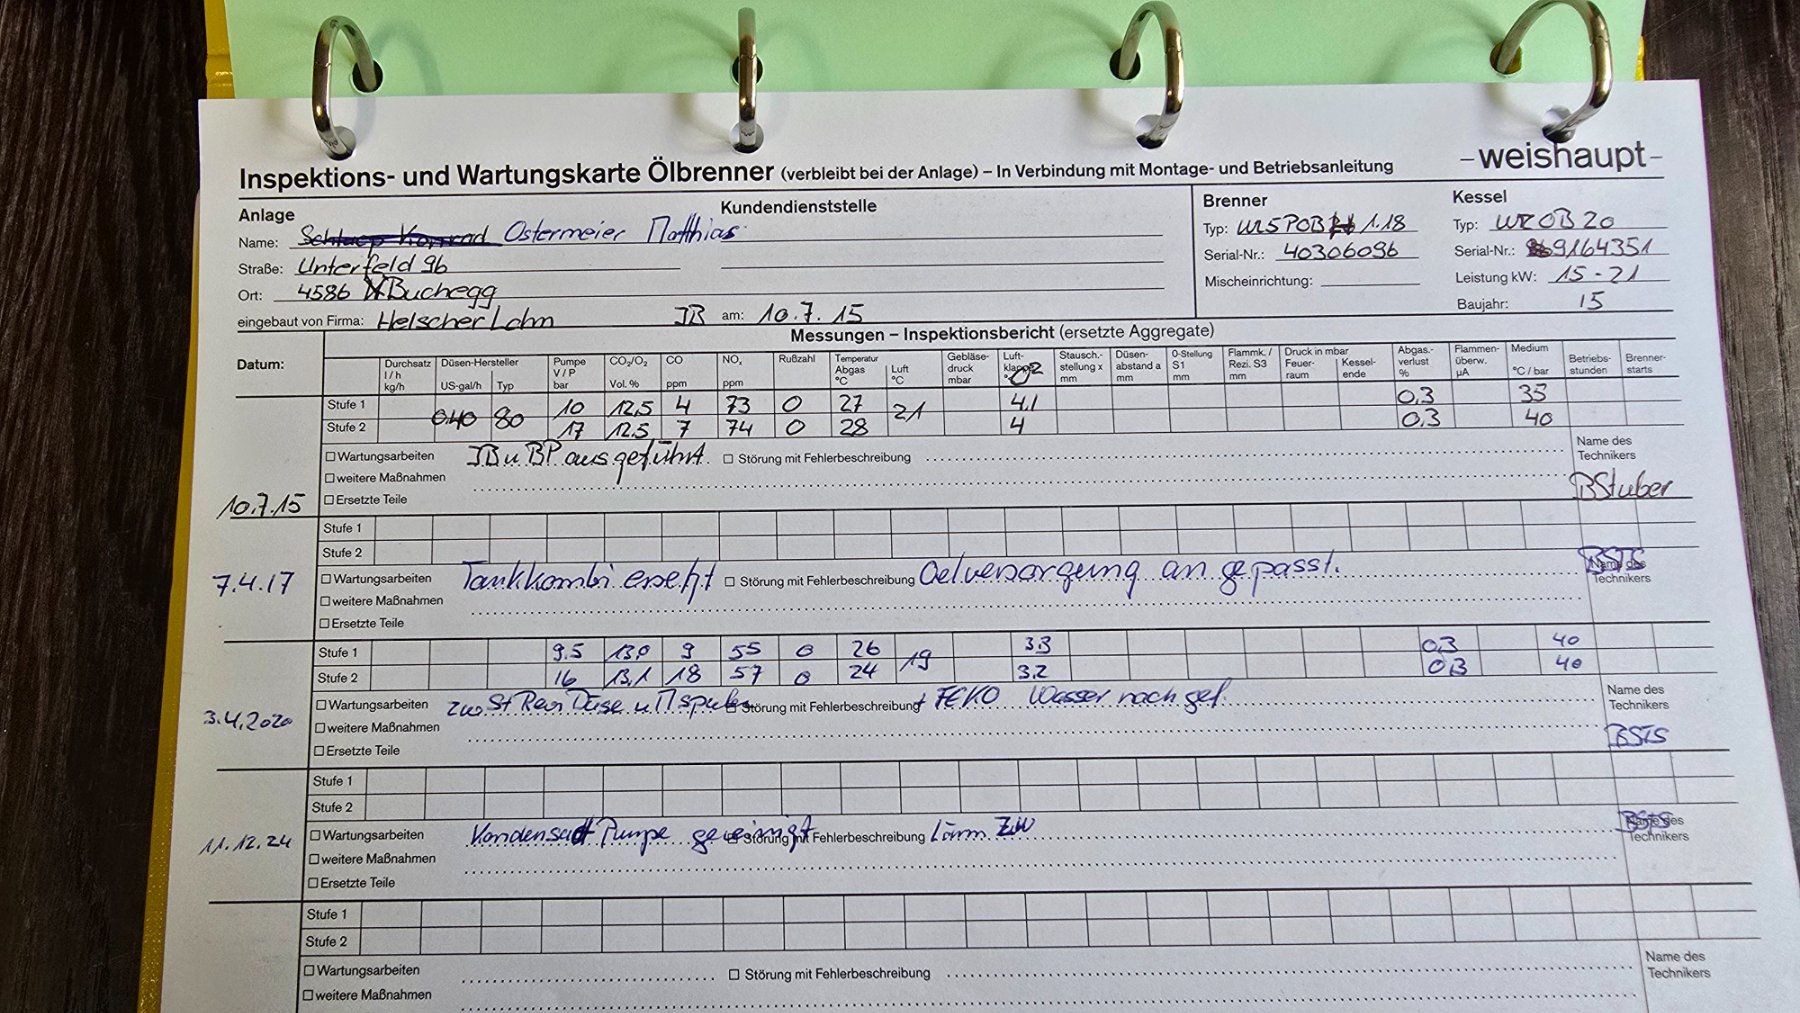 Inspektions- und Wartungskarte Ölbrenner (verbleibt bei der Anlage) – In Verbindung mit Montage- und Betriebsanleitung
–weishaupt–
Anlage
Kundendienststelle
Name: Ostermeier Matthias
Straße: Unterfeld 9b
Ort: 4586 Buchegg
eingebaut von Firma: Helscher Lohn JB am: 10.7.15
Brenner
Typ: 1.18
Serial-Nr.: 40306096
Mischeinrichtung:
Kessel
Typ: WTC OB 20
Serial-Nr.: 9164351
Leistung kW: 15-21
Baujahr: 15
Messungen – Inspektionsbericht (ersetzte Aggregate)
Datum:
Durchsatz l/h kg/h
Düsen-Hersteller US-gal/h Typ
Pumpe V/P bar
CO₂/O₂ Vol. %
CO ppm
NOₓ ppm
Rußzahl
Temperatur Abgas °C
Luft °C
Gebläse-druck mbar
Luft-klappe O2
Stausch.-stellung x mm
Düsen-abstand a mm
0-Stellung S1 mm
Flammk. / Rezi. S3 mm
Druck in mbar Feuer-raum Kessel-ende
Abgas.-verlust %
Flammen-überw. µA
Medium °C / bar
Betriebs-stunden
Brenner-starts
Stufe 1 10 12,5 4 73 0 27 4.1 0,3 35
0.40 80 21
Stufe 2 17 12.5 7 74 0 28 4 0,3 40
Wartungsarbeiten JB u BP ausgeführt. Störung mit Fehlerbeschreibung
Name des Technikers
weitere Maßnahmen
BStuber
10.7.15
Ersetzte Teile
Stufe 1
Stufe 2
7.4.17
Wartungsarbeiten Tankkombi ersetzt Störung mit Fehlerbeschreibung Oelversorgung an gepasst.
BSTS
Name des Technikers
weitere Maßnahmen
Ersetzte Teile
Stufe 1 9.5 13,0 9 55 0 26 3.3 0,3 40
19
Stufe 2 16 13,1 18 57 0 24 3.2 0,3 40
3.4.2020
Wartungsarbeiten Düse u Störung mit Fehlerbeschreibung + FEKO Wasser nachgef.
Name des Technikers
weitere Maßnahmen
BSTS
Ersetzte Teile
Stufe 1
Stufe 2
11.12.24
Wartungsarbeiten Kondensat Pumpe gereinigt Störung mit Fehlerbeschreibung Lärm
BSTS
Name des Technikers
weitere Maßnahmen
Ersetzte Teile
Stufe 1
Stufe 2
Wartungsarbeiten Störung mit Fehlerbeschreibung
Name des Technikers
weitere Maßnahmen